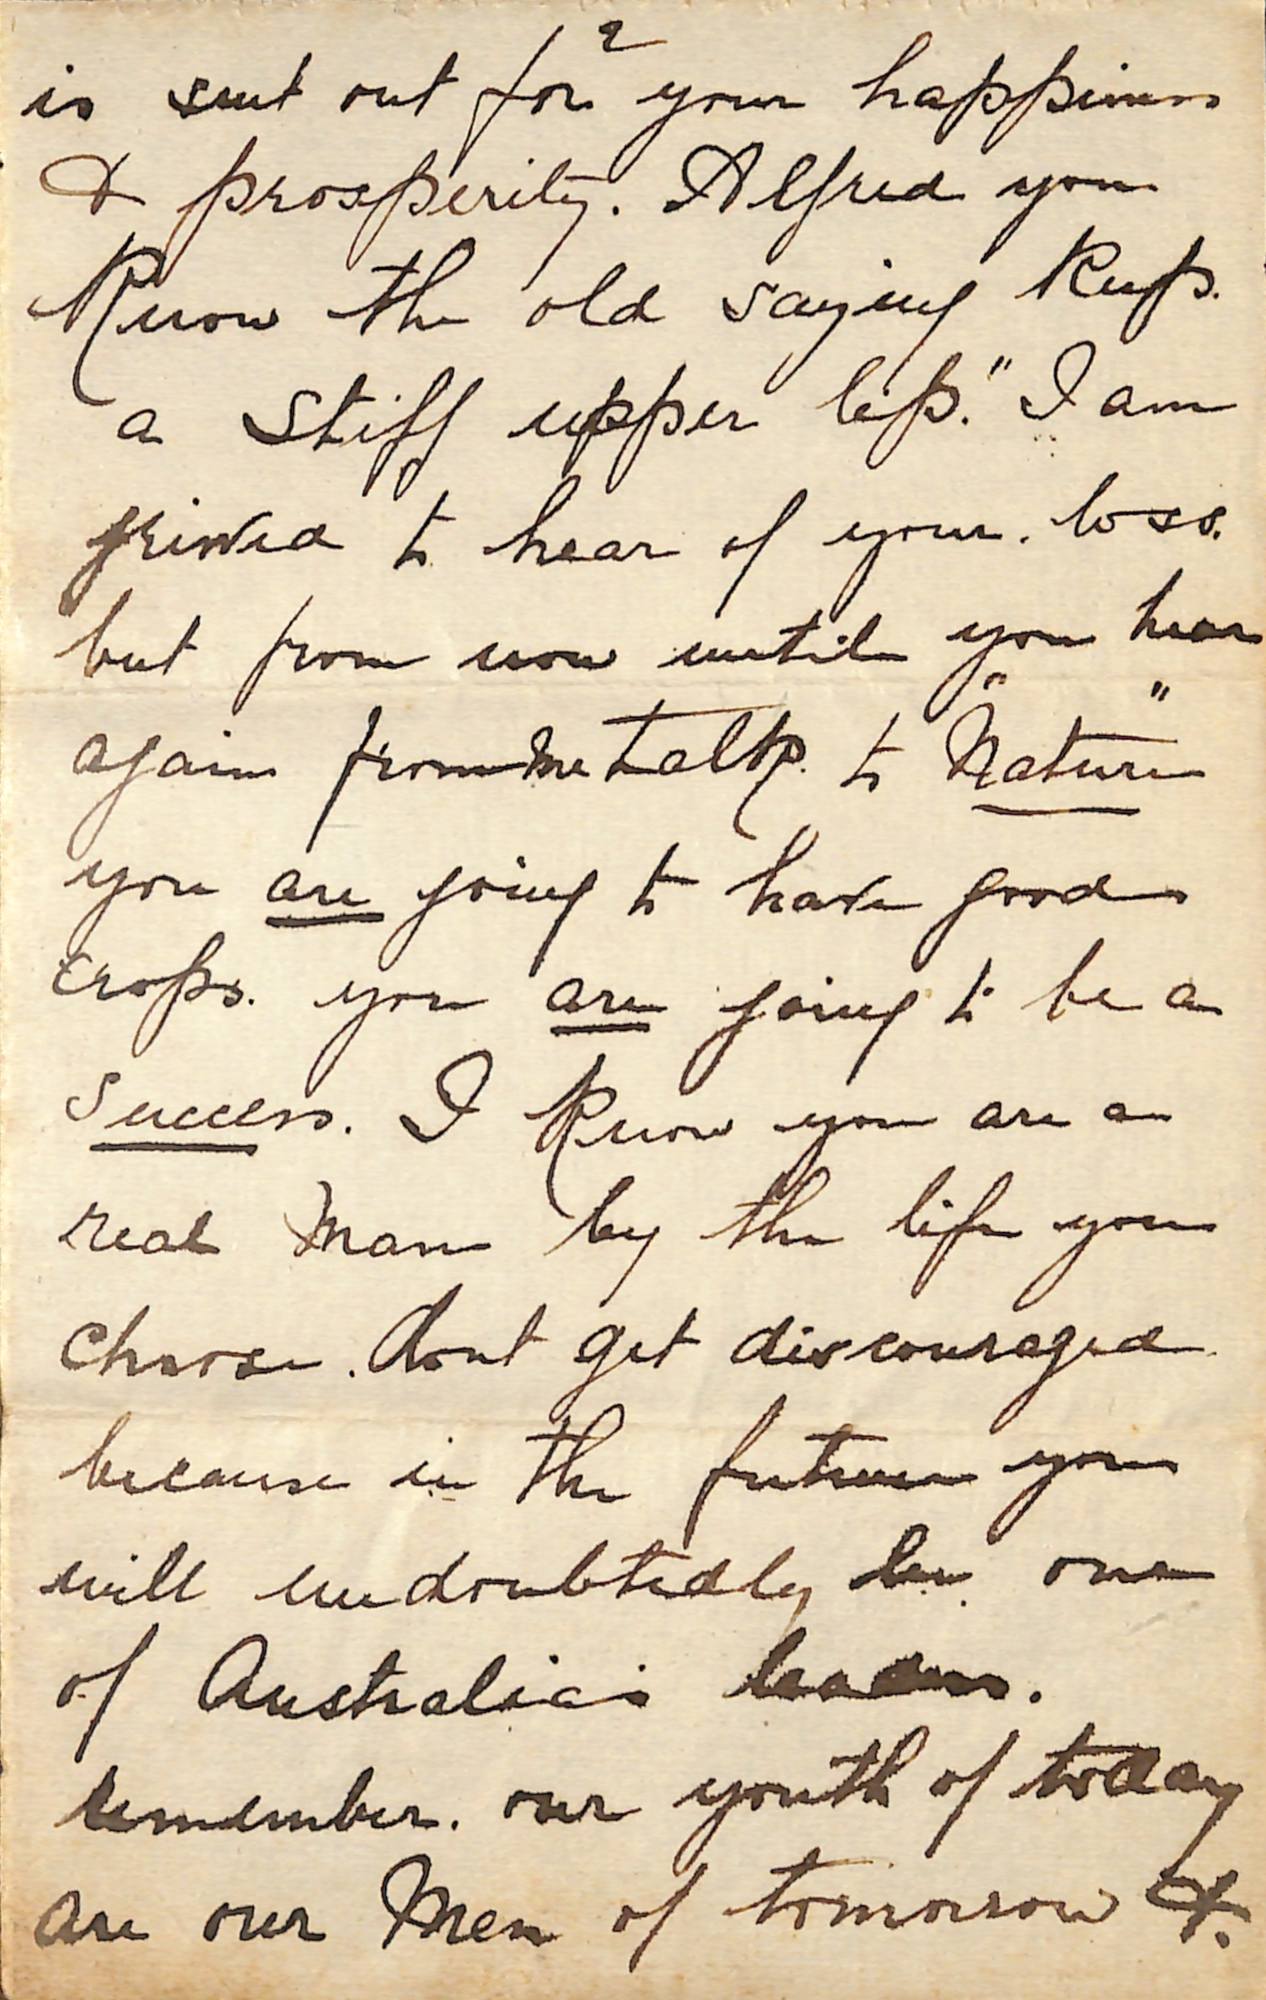 2
is sent out for your happiness
& prosperity. Alfred you
Know the old saying Keep.
a Stiff upper lip." I am
grieved to hear of your. loss.
but from now until you hear
again from me talk. to "Nature"
you are going to have good
crops. you are going to be a
Success. I Know you are a
real Man by the life you
choose. dont get discouraged
because in the future you
will undoubtedly be one
of Australia's leaders.
remember. our youth of today
are our Men of tomorrow &.